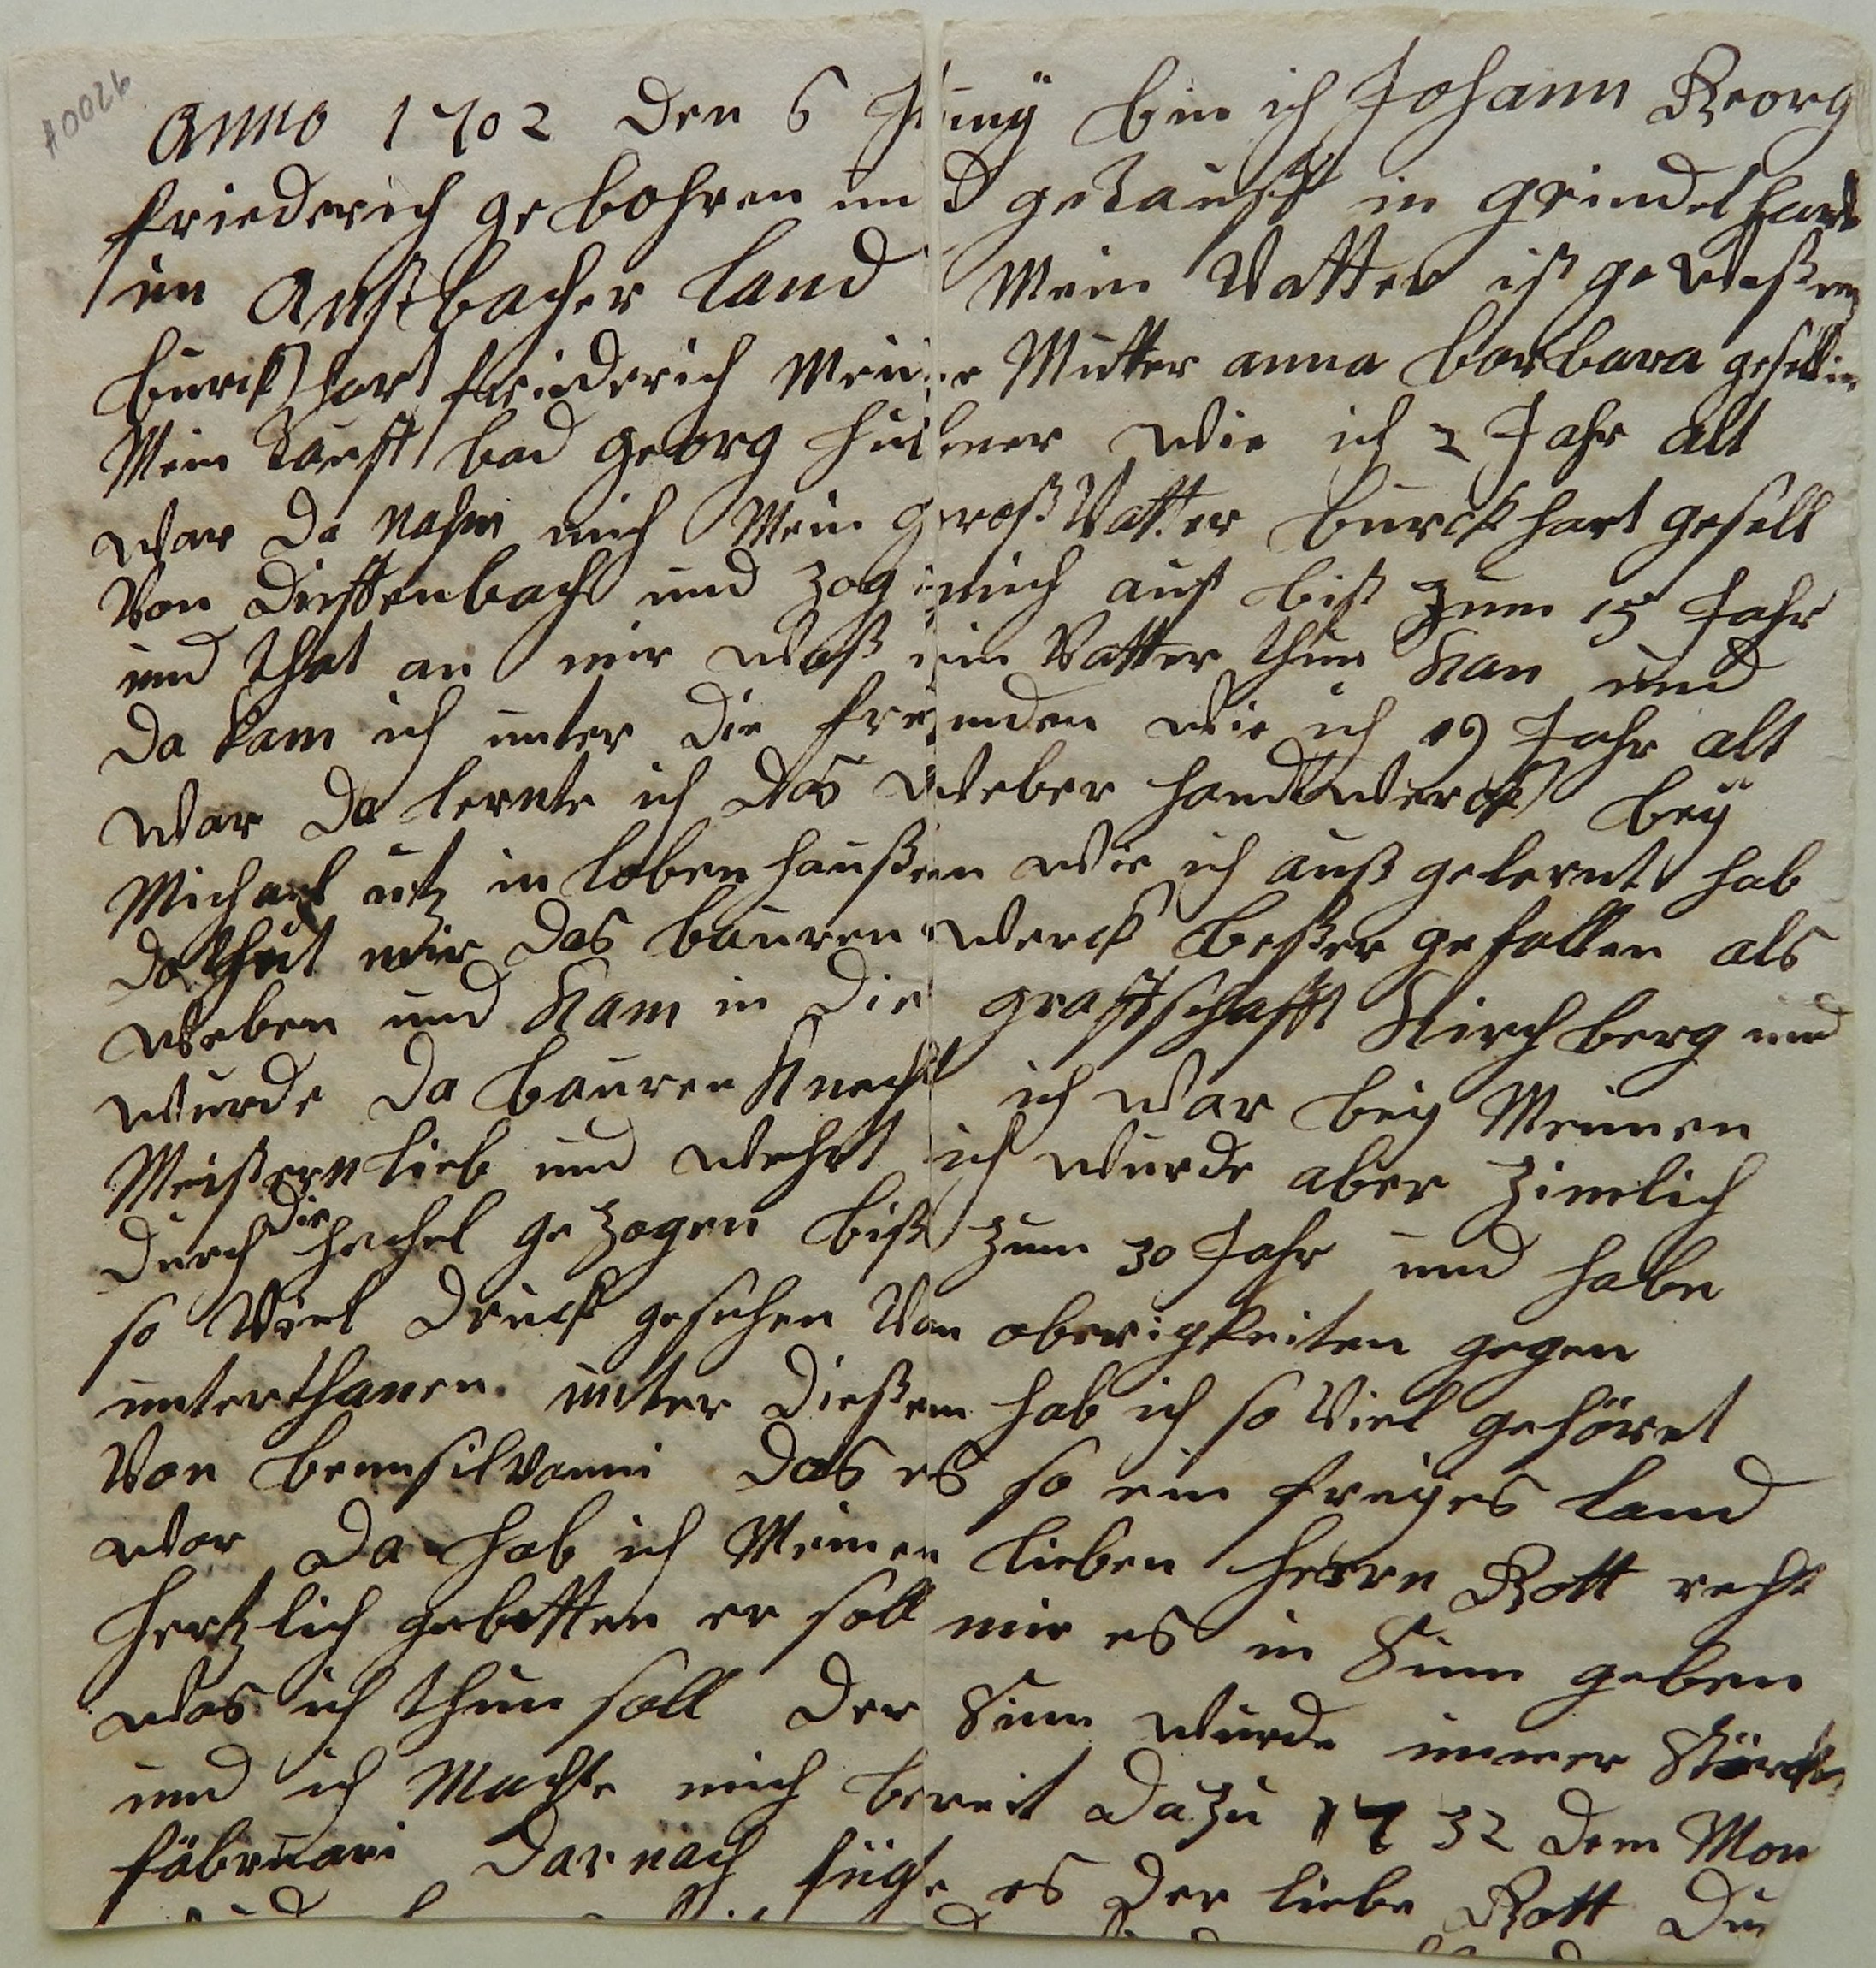 #0026
Anno 1702 den 6 Juny bin ich Johann Georg
friederich gebohren und getaufft in grindelhart
im Anßbacher land Mein Vatter ist geweßen
burckhart friederich Meine Mutter anna barbara gesellin
Mein taufft bad georg hubner wie ich 2 Jahr alt
war da nahm mich Mein groß Vatter burckhart gesell
Von dieffenbach und zog mich auf biß zum 15 Jahr
und that an mir waß ein Vatter thun kan und
da kam ich unter die fremden wie ich 19 Jahr alt
war da lernte ich das weber handtwerck bey
Michael utz in lobenhaußen wie ich auß gelernt hab
da thut mir das bauren werck beßer gefallen als
weben und kam in die graffschafft Kirchberg und
wurde da bauren knecht ich war bey Meinen
Meistern lieb und wehrt ich wurde aber zimlich
durch die hechel gezogen biß zum 30 Jahr und habe
so Viel druck gesehen Von oberigkeiten gegen
unterthanen. unter dießem hab ich so Viel gehöret
Von bennsilvanni das es so ein freyes land
war da hab ich Meinen lieben herrn Gott recht
hertzlich gebetten er soll mir es in Sinn geben
was ich thun soll der Sinn wurde immer Stärcker
und ich Machte mich bereit dazu 1732 dem Mon
fäbruari darnach fügte es der liebe Gott